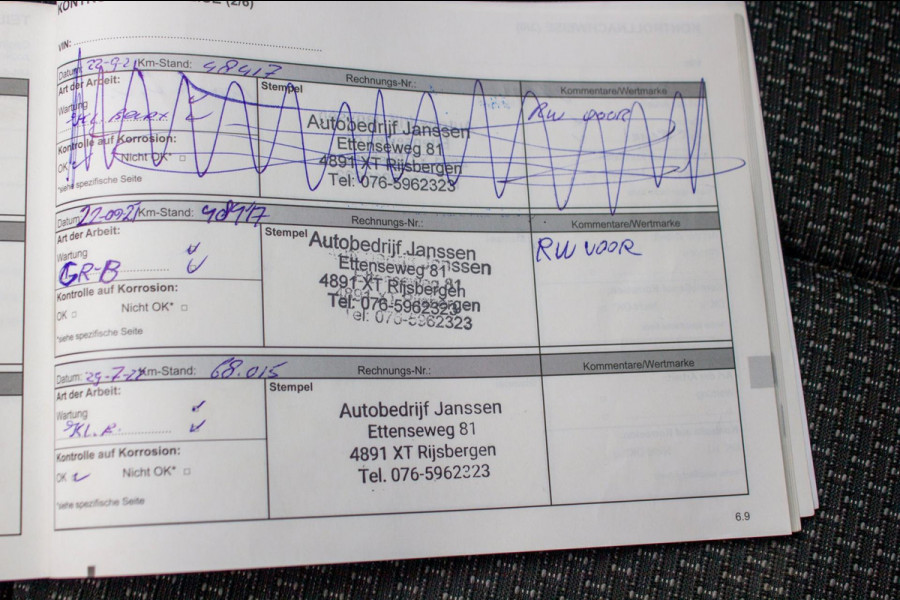 (2/6)
VIN:
Datum: 22-9-21 Km-Stand: 48417 Rechnungs-Nr.: Kommentare/Wertmarke
Art der Arbeit: Stempel
Wartung
RW VOOR
Autobedrijf Janssen
Ettenseweg 81
4891 XT Rijsbergen
Tel: 076-5962323
Kontrolle auf Korrosion:
OK Nicht OK*
*siehe spezifische Seite
Datum: 22-09-21 Km-Stand: 48417 Rechnungs-Nr.: Kommentare/Wertmarke
Art der Arbeit: Stempel
Wartung
GR-B
RW VOOR
Autobedrijf Janssen
Ettenseweg 81
4891 XT Rijsbergen
Tel: 076-5962323
Kontrolle auf Korrosion:
OK Nicht OK*
*siehe spezifische Seite
Datum: 29-7-22 Km-Stand: 68.015 Rechnungs-Nr.: Kommentare/Wertmarke
Art der Arbeit: Stempel
Wartung
KL.B.
Autobedrijf Janssen
Ettenseweg 81
4891 XT Rijsbergen
Tel. 076-5962323
Kontrolle auf Korrosion:
OK Nicht OK*
*siehe spezifische Seite
6.9